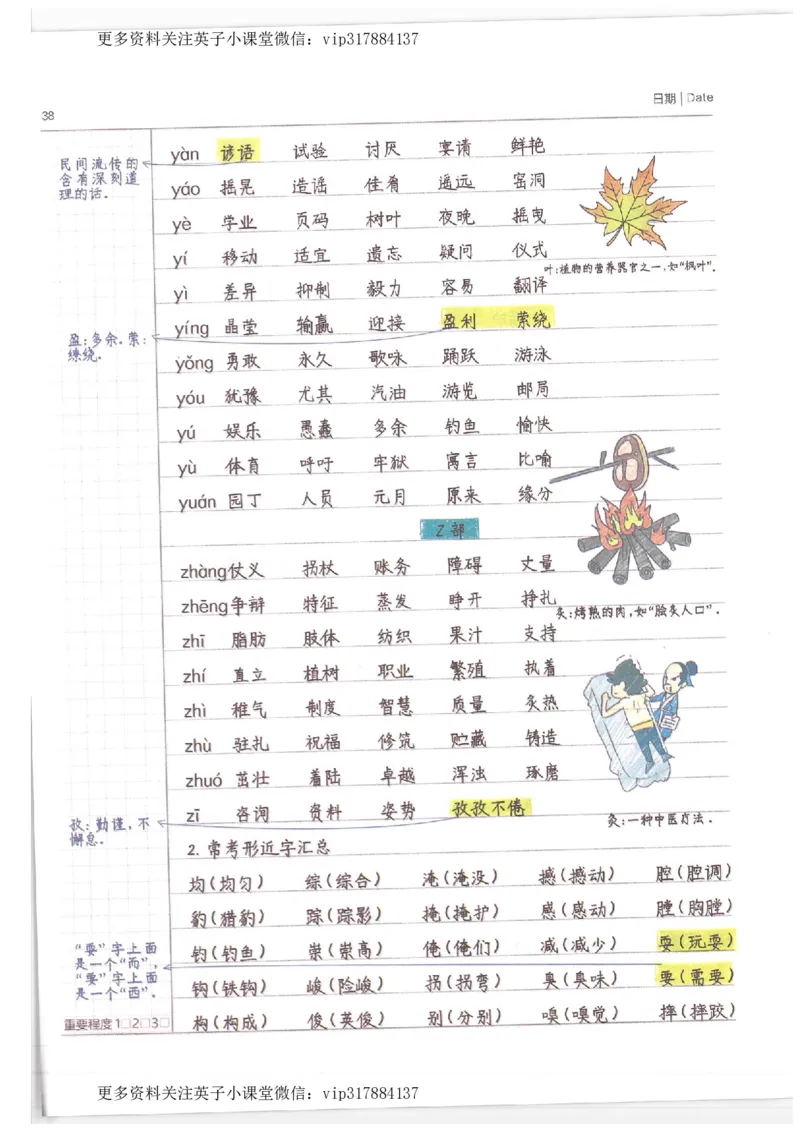 更多资料关注英子小课堂微信：vip317884137
日期 | Date
38
yàn 谚语 试验 讨厌 宴请 鲜艳
民间流传的
含有深刻道
理的话。
yáo 摇晃 造谣 佳肴 遥远 窑洞
yè 学业 页码 树叶 夜晚 摇曳
yí 移动 适宜 遗忘 疑问 仪式
叶：植物的营养器官之一，如“枫叶”。
yì 差异 抑制 毅力 容易 翻译
yíng 晶莹 输赢 迎接 盈利 萦绕
盈：多余。萦：
缭绕。
yǒng 勇敢 永久 歌咏 踊跃 游泳
yóu 犹豫 尤其 汽油 游览 邮局
yú 娱乐 愚蠢 多余 钓鱼 愉快
yù 体育 呼吁 牢狱 寓言 比喻
yuán 园丁 人员 元月 原来 缘分
Z 部
zhàng 仗义 拐杖 账务 障碍 丈量
zhēng 争辩 特征 蒸发 睁开 挣扎
炙：烤熟的肉，如“脍炙人口”。
zhī 脂肪 肢体 纺织 果汁 支持
zhí 直立 植树 职业 繁殖 执着
zhì 稚气 制度 智慧 质量 炙热
zhù 驻扎 祝福 修筑 贮藏 铸造
zhuó 茁壮 着陆 卓越 浑浊 琢磨
zī 咨询 资料 姿势 孜孜不倦
灸：一种中医疗法。
孜：勤谨，不
懈怠。
2. 常考形近字汇总
均（均匀） 综（综合） 淹（淹没） 撼（撼动） 腔（腔调）
豹（猎豹） 踪（踪影） 掩（掩护） 感（感动） 膛（胸膛）
钓（钓鱼） 崇（崇高） 俺（俺们） 减（减少） 耍（玩耍）
“耍”字上面
是一个“而”，
“要”字上面
是一个“西”。
钩（铁钩） 峻（险峻） 拐（拐弯） 臭（臭味） 要（需要）
构（构成） 俊（英俊） 别（分别） 嗅（嗅觉） 摔（摔跤）
重要程度 1□2□3□
更多资料关注英子小课堂微信：vip317884137